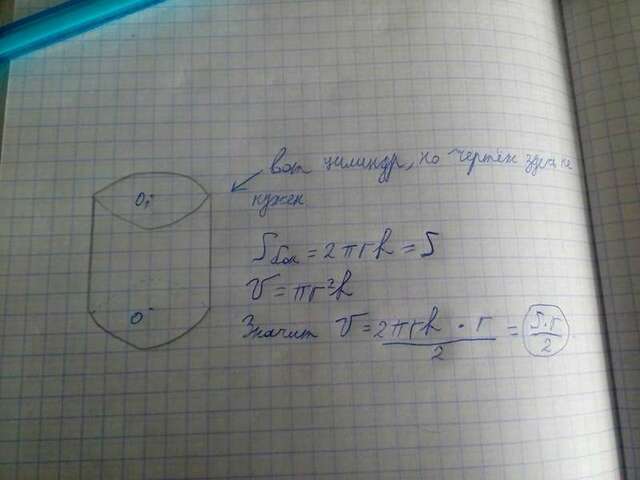 вот цилиндр, но чертёж здесь не
нужен
O₁
Sбок = 2πrh = S
V = πr²h
O
Значит V = 2πrh · r / 2 = S·r / 2